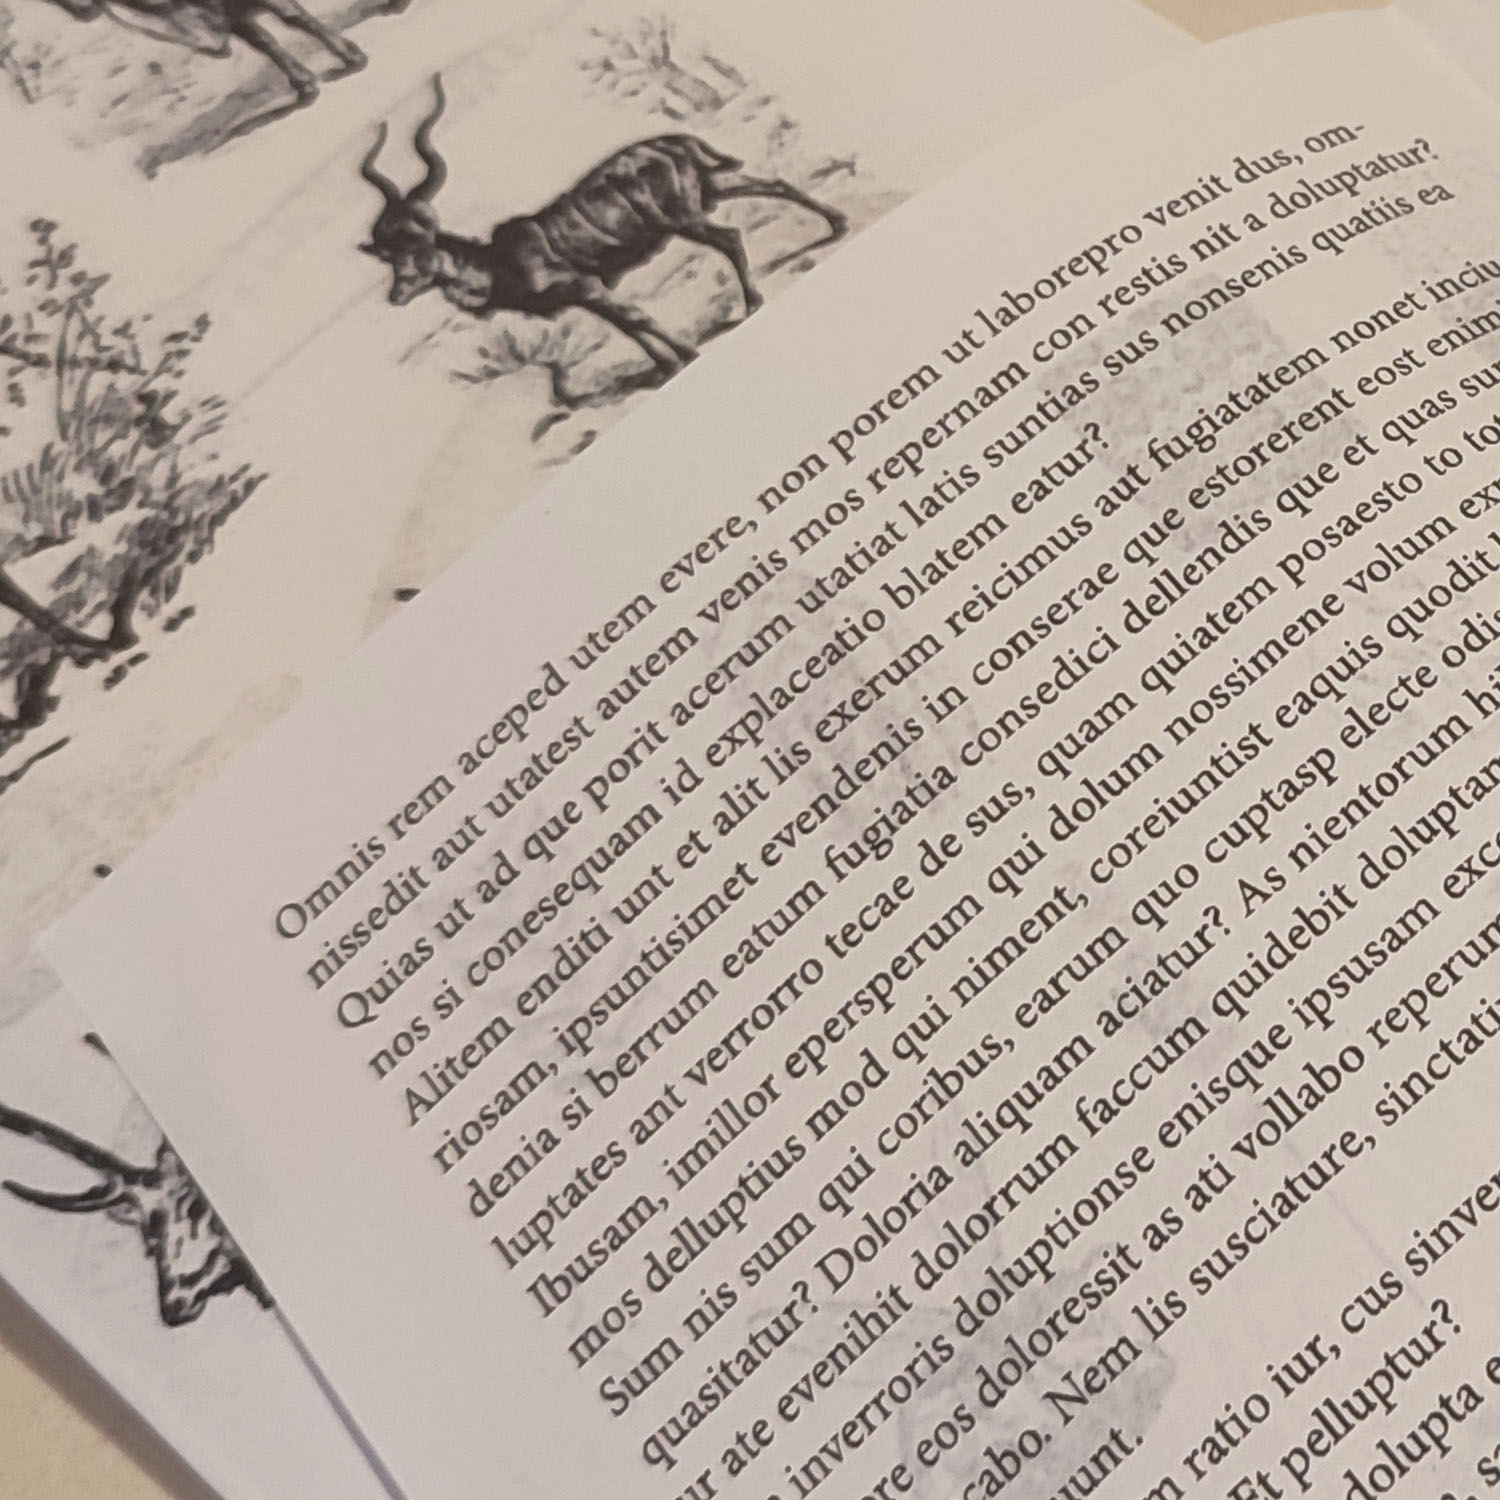 Omnis rem aceped utem evere, non porem ut laborepro venit dus, om-
nissedit aut utatest autem venis mos repernam con restis nit a doluptatur?
Quias ut ad que porit acerum utatiat latis suntias sus nonsenis quatiis ea
nos si conesequam id explaceatio blatem eatur?
Alitem enditi unt et alit lis exerum reicimus aut fugiatatem nonet inciu
riosam, ipsuntisimet evendenis in conserae que estorerent eost enim
denia si berrum eatum fugiatia consedici dellendis que et quas
luptates ant verrorro tecae de sus, quam quiatem posaesto to
Ibusam, imillor epersperum qui dolum nossimene volum
mos delluptius mod qui niment, coreiuntist eaquis quodit
Sum nis sum qui coribus, earum quo cuptasp electe
quasitatur? Doloria aliquam aciatur? As nientorum
ur ate evenihit dolorrum faccum quidebit
inverroris doluptionse enisque ipsusam
re eos doloressit as ati vollabo
cabo. Nem lis susciature,
uunt.
ratio iur, cus
Et pelluptur?
dolupta